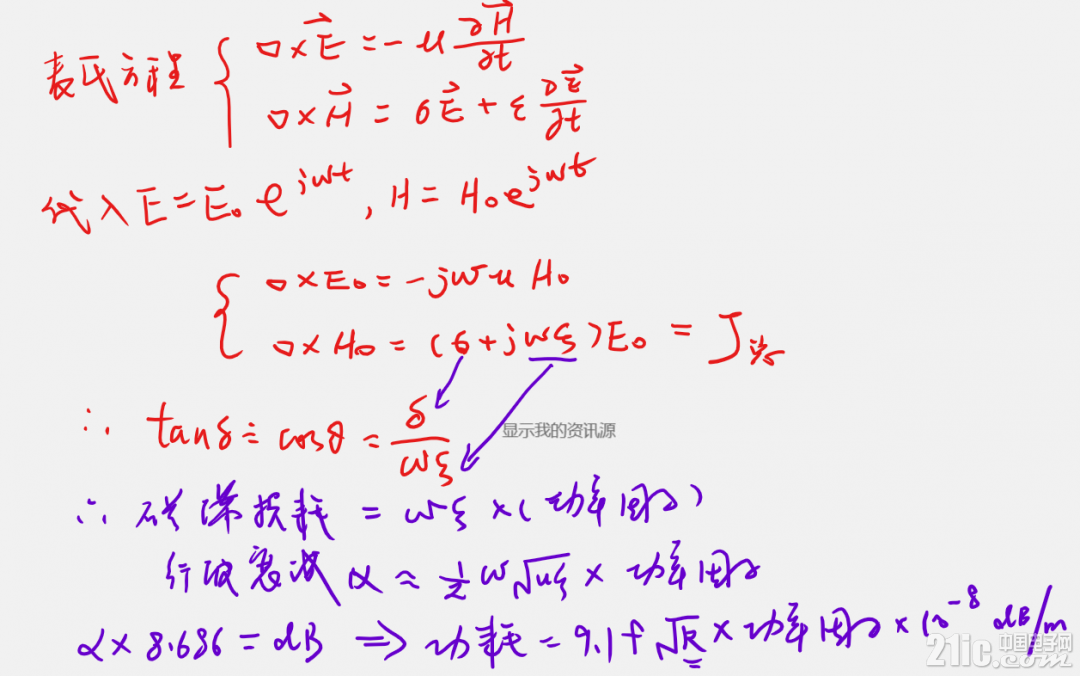 麦氏方程 { ∇×E⃗ = -μ ∂H⃗/∂t
∇×H⃗ = σE⃗ + ε ∂E⃗/∂t
代入 E = E₀ e^{jωt}, H = H₀e^{jωt}
{ ∇×E₀ = -jωμ H₀
∇×H₀ = (σ+jωε)E₀ = J
∴ tanδ ≐ cosθ = σ/ωε
显示我的资讯源
∴ 损耗 = ωε ×(功率因子)
行波衰减 α ≈ ½ω√με × 功率因子
α × 8.686 = dB ⇒ 功耗 = 9.1f √k × 功率因子 × 10⁻⁸ dB/m
21ic.com 中国电子网